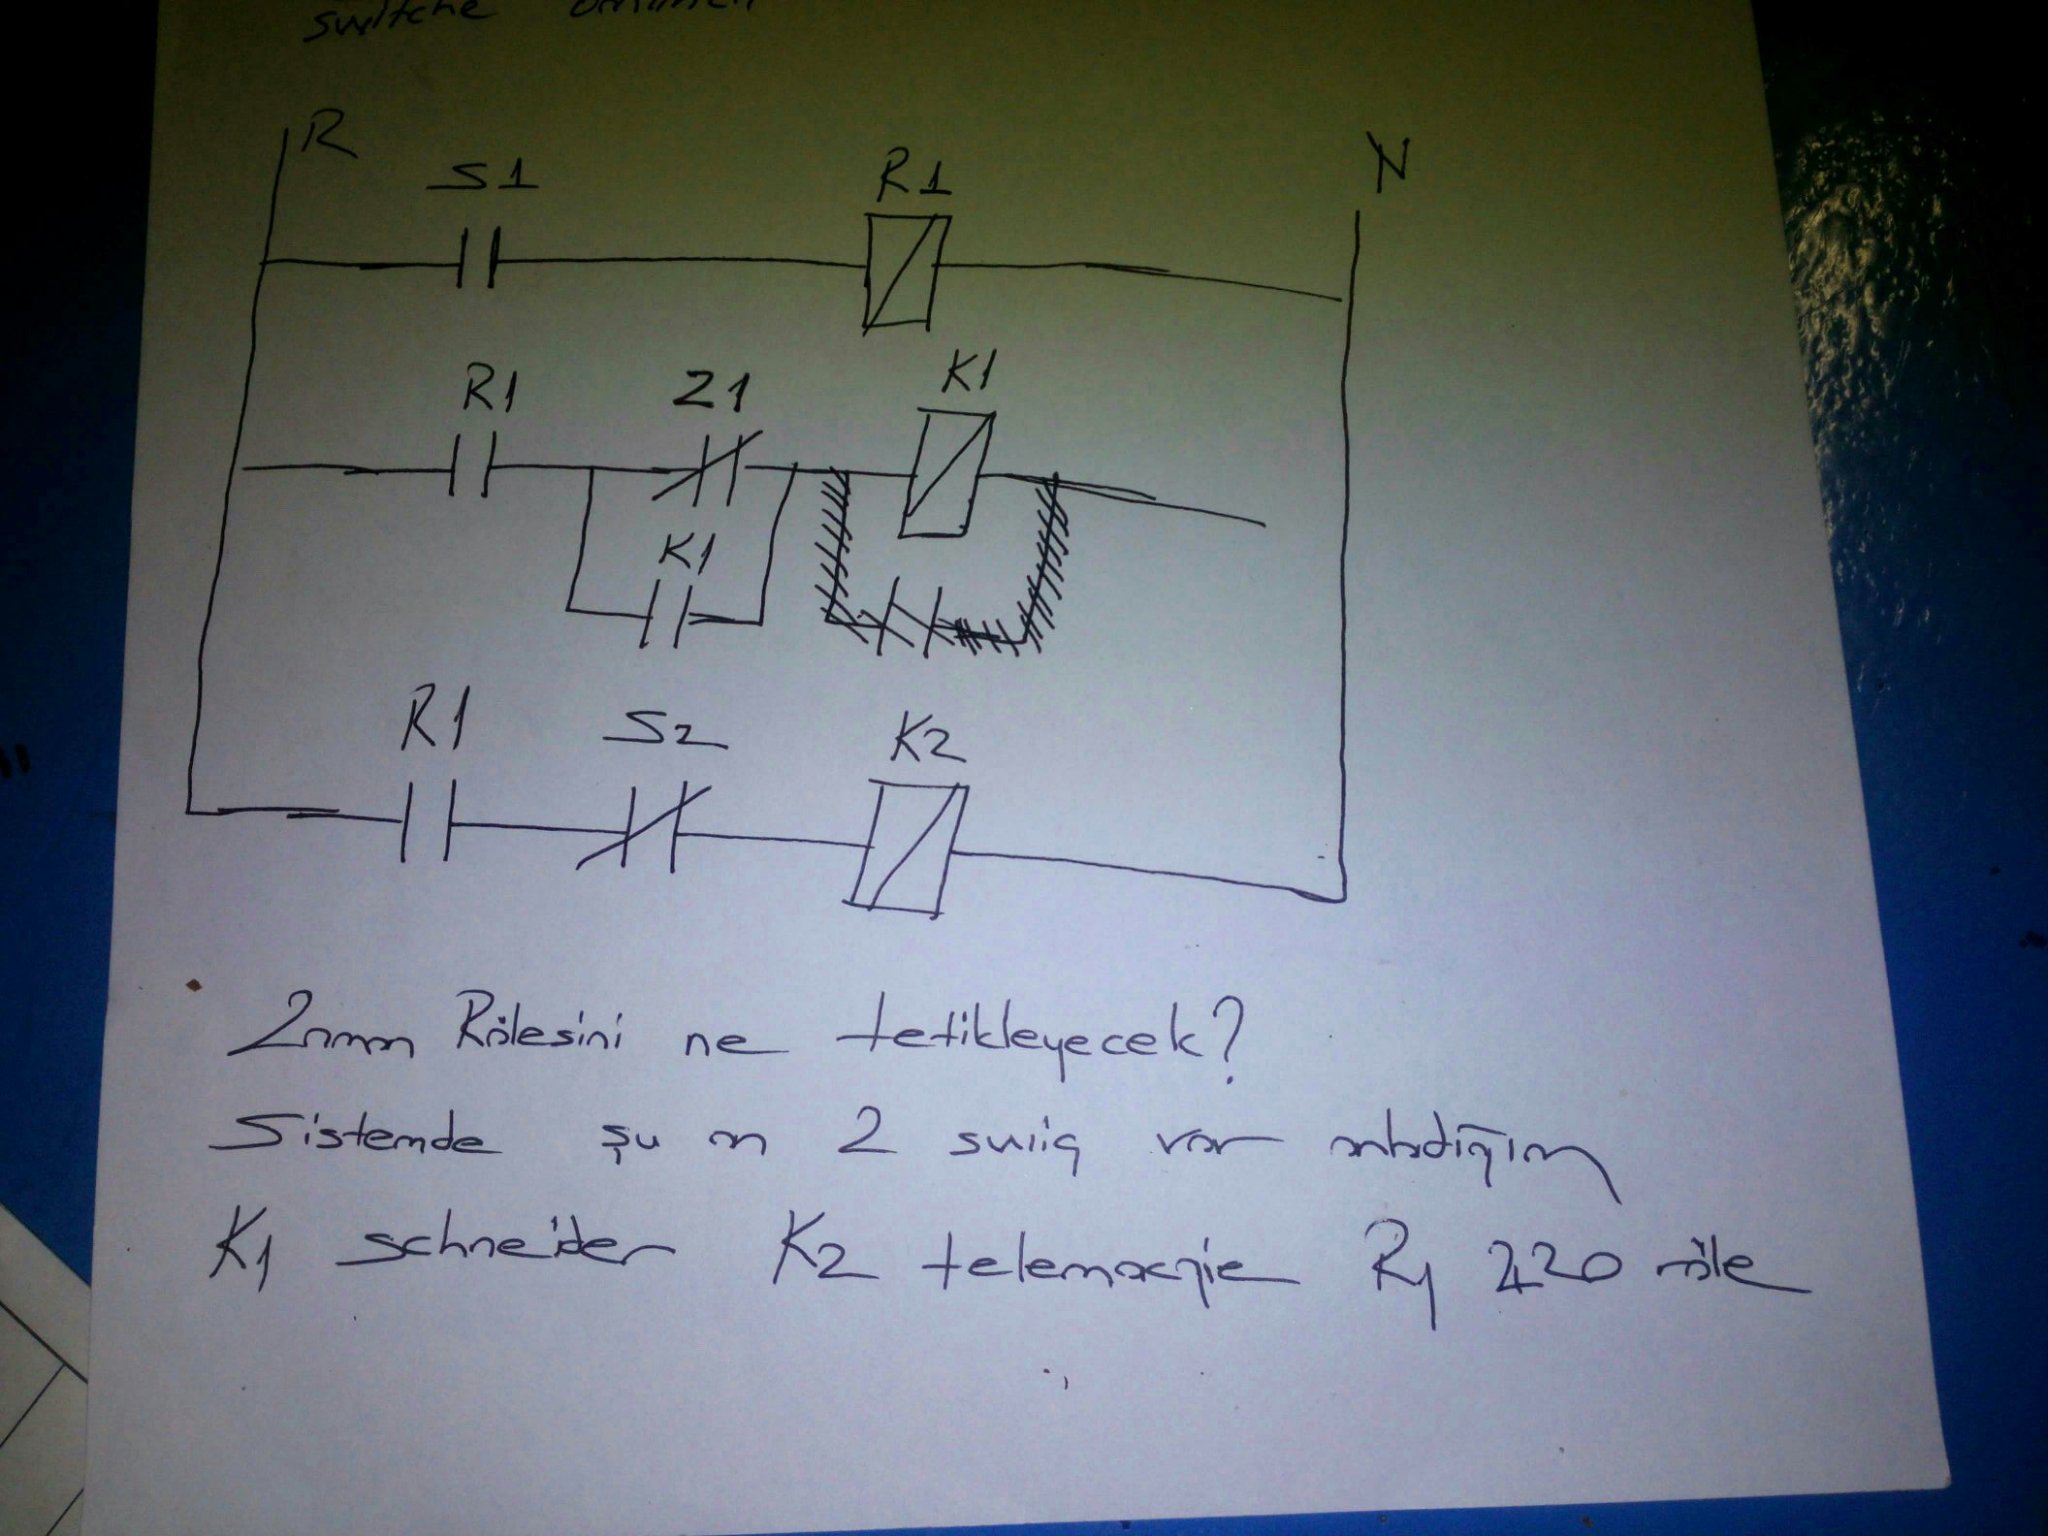 switche
R
N
S1
R1
R1
Z1
K1
K1
R1
S2
K2
Zaman Rölesini ne tetikleyecek?
Sistemde şu an 2 sviiç var anladığım
K1 schneider K2 telemacnie R1 220 röle